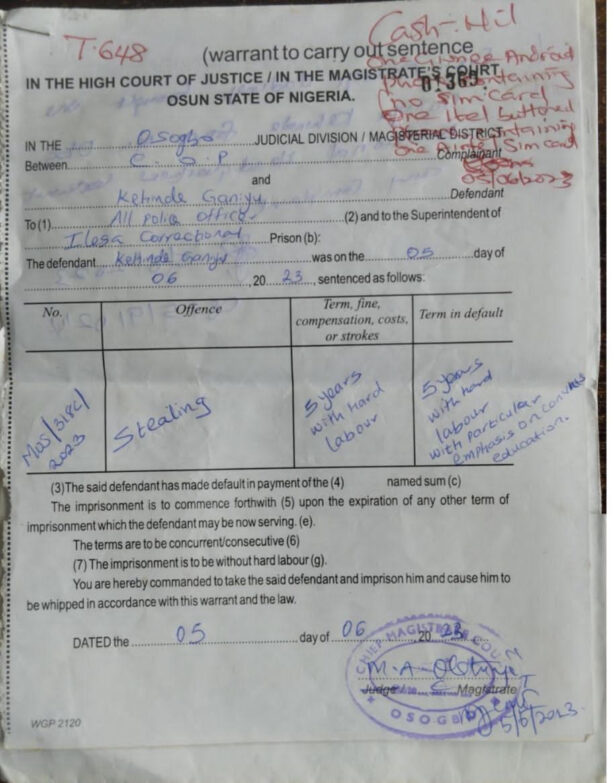 T.648
Cash-Nil
(warrant to carry out sentence
One Android
IN THE HIGH COURT OF JUSTICE / IN THE MAGISTRATE'S COURT
containing
OSUN STATE OF NIGERIA.
01363
no sim card
One Itel buttoned
IN THE Osogbo JUDICIAL DIVISION / MAGISTERIAL DISTRICT
containing
one Sim card
Between C.O.P Complainant
05/06/2023
and
Kehinde Ganiyu Defendant
To (1) All Police Officer (2) and to the Superintendent of
Ilesa Correctional Prison (b):
The defendant Kehinde Ganiyu was on the 05 day of
06, 20 23, sentenced as follows:
No. Offence Term, fine, compensation, costs, or strokes Term in default
MOS/318C/2023 Stealing 5 years with hard labour 5 years with hard labour with particular emphasis on convicts education.
(3)The said defendant has made default in payment of the (4) named sum (c)
The imprisonment is to commence forthwith (5) upon the expiration of any other term of
imprisonment which the defendant may be now serving. (e).
The terms are to be concurrent/consecutive (6)
(7) The imprisonment is to be without hard labour (g).
You are hereby commanded to take the said defendant and imprison him and cause him to
be whipped in accordance with this warrant and the law.
DATED the 05 day of 06 20 23
CHIEF MAGISTRATE COURT
M.A.
Judge Magistrate
OSOGBO
5/6/2023
WGP 2120